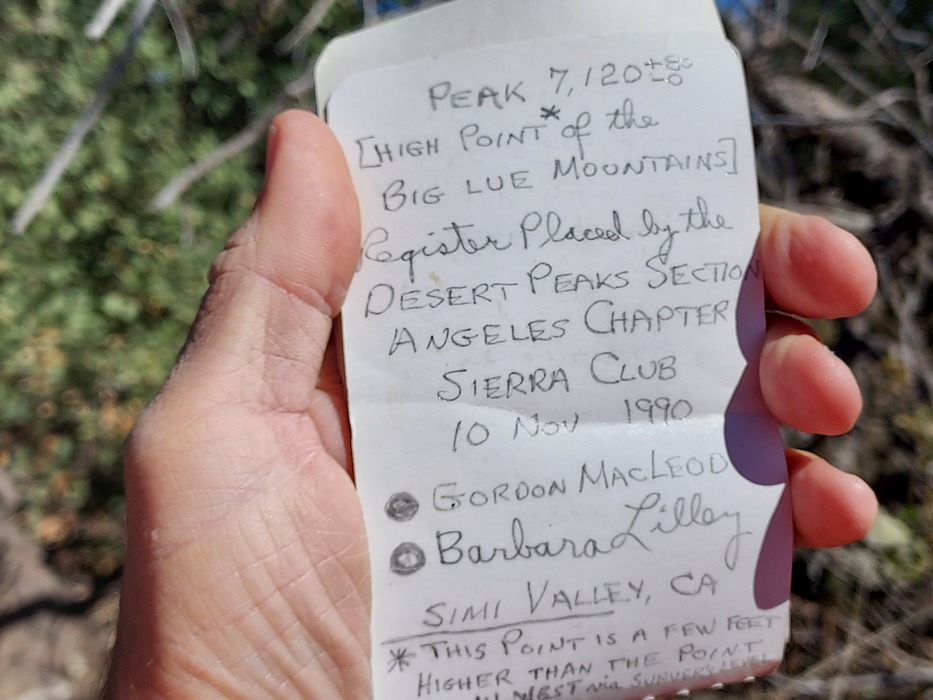 PEAK 7,120 +80 -0
[HIGH POINT* of the
BIG LUE MOUNTAINS]
Register Placed by the
DESERT PEAKS SECTION
ANGELES CHAPTER
SIERRA CLUB
10 Nov 1990
GORDON MACLEOD
Barbara Lilley
SIMI VALLEY, CA
* THIS POINT IS A FEW FEET
HIGHER THAN THE POINT
WEST via SURVEY LEVEL